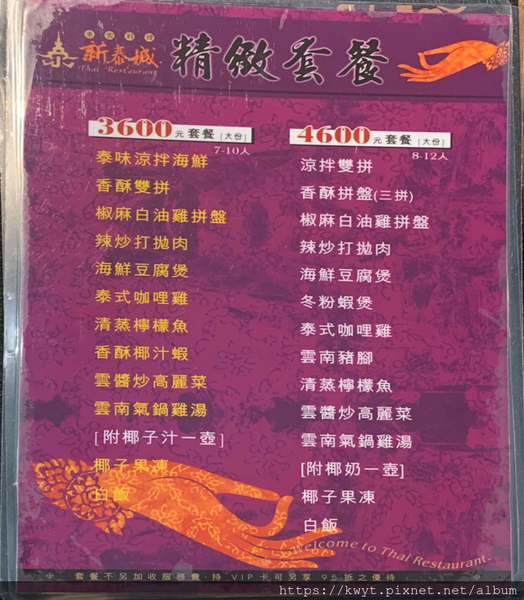 泰雲料理
新泰城
Thai Restaurant
精緻套餐
3600元 套餐 [大份]
7-10人
泰味涼拌海鮮
香酥雙拼
椒麻白油雞拼盤
辣炒打拋肉
海鮮豆腐煲
泰式咖哩雞
清蒸檸檬魚
香酥椰汁蝦
雲醬炒高麗菜
雲南氣鍋雞湯
[附椰子汁一壺]
椰子果凍
白飯
4600元 套餐 [大份]
8-12人
涼拌雙拼
香酥拼盤(三拼)
椒麻白油雞拼盤
辣炒打拋肉
海鮮豆腐煲
冬粉蝦煲
泰式咖哩雞
雲南豬腳
清蒸檸檬魚
雲醬炒高麗菜
雲南氣鍋雞湯
[附椰奶一壺]
椰子果凍
白飯
Welcome to Thai Restaurant.
套餐不另加收服務費‧持 VIP 卡可另享 95折之優待
https://kwyt.pixnet.net/album